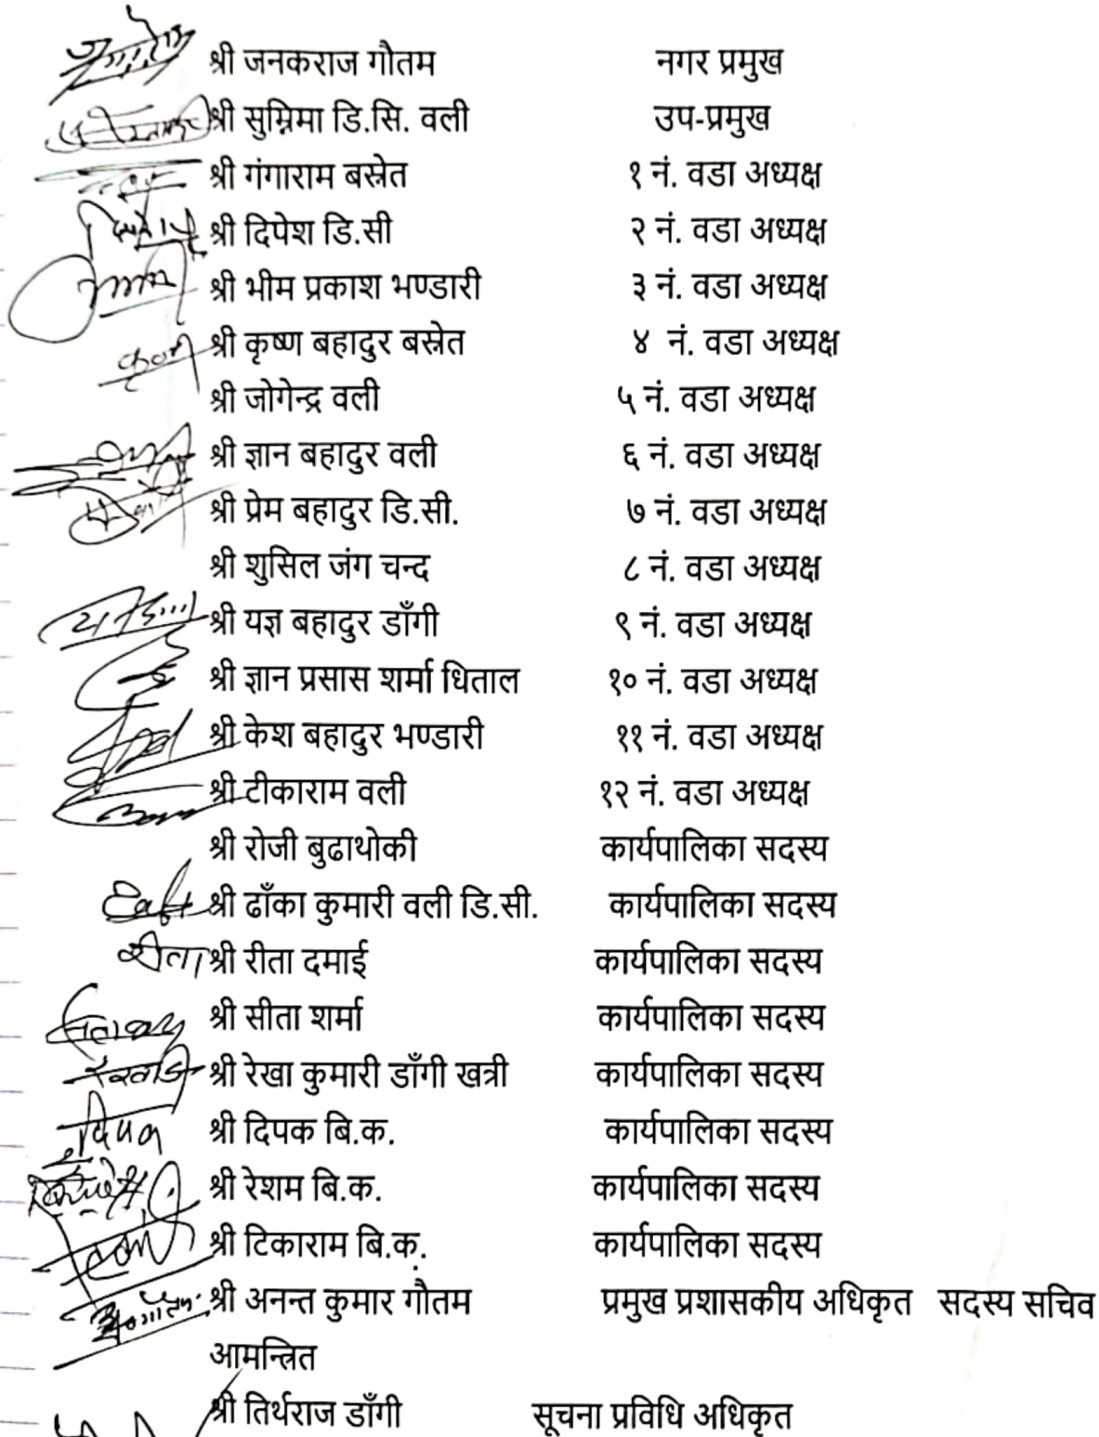 श्री जनकराज गौतम नगर प्रमुख
श्री सुम्निमा डि.सि. वली उप-प्रमुख
श्री गंगाराम बस्नेत १ नं. वडा अध्यक्ष
श्री दिपेश डि.सी २ नं. वडा अध्यक्ष
श्री भीम प्रकाश भण्डारी ३ नं. वडा अध्यक्ष
श्री कृष्ण बहादुर बस्नेत ४ नं. वडा अध्यक्ष
श्री जोगेन्द्र वली ५ नं. वडा अध्यक्ष
श्री ज्ञान बहादुर वली ६ नं. वडा अध्यक्ष
श्री प्रेम बहादुर डि.सी. ७ नं. वडा अध्यक्ष
श्री शुसिल जंग चन्द ८ नं. वडा अध्यक्ष
श्री यज्ञ बहादुर डाँगी ९ नं. वडा अध्यक्ष
श्री ज्ञान प्रसास शर्मा धिताल १० नं. वडा अध्यक्ष
श्री केश बहादुर भण्डारी ११ नं. वडा अध्यक्ष
श्री टीकाराम वली १२ नं. वडा अध्यक्ष
श्री रोजी बुढाथोकी कार्यपालिका सदस्य
श्री ढाँका कुमारी वली डि.सी. कार्यपालिका सदस्य
रीता श्री रीता दमाई कार्यपालिका सदस्य
श्री सीता शर्मा कार्यपालिका सदस्य
श्री रेखा कुमारी डाँगी खत्री कार्यपालिका सदस्य
दिपक श्री दिपक बि.क. कार्यपालिका सदस्य
श्री रेशम बि.क. कार्यपालिका सदस्य
श्री टिकाराम बि.क. कार्यपालिका सदस्य
श्री अनन्त कुमार गौतम प्रमुख प्रशासकीय अधिकृत सदस्य सचिव
आमन्त्रित
श्री तिर्थराज डाँगी सूचना प्रविधि अधिकृत